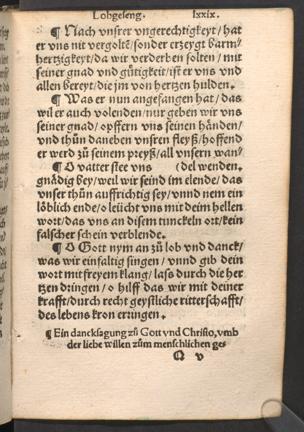 Lobgeseng. lxxix.
¶ Nach vnsrer vngerechtigkeyt / hat
er vns nit vergolte / sonder erzeygt barm-
hertzigkeyt / da wir verderben solten / mit
seiner gnad vnd gütigkeit / ist er vns vnd
allen bereyt / die jm von hertzen hulden.
¶ Was er nun angefangen hat / das
wil er auch volenden / nur geben wir vns
seiner gnad / opffern vns seinen händen /
vnd thün daneben vnsren fleyß / hoffend
er werd zü seinem preyß / all vnsern wan-
¶ O vatter stee vns (del wenden.
gnädig bey / weil wir seind im elende / das
vnser thün auffrichtig sey / vnnd nem ein
löblich ende / o leücht vns mit deim hellen
wort / das vns an disem tunckeln ort / kein
falscher schein verblende.
¶ O Gott nym an zü lob vnd danck /
was wir einfaltig singen / vnnd gib dein
wort mit freyem klang / lass durch die her
tzen dringen / o hilff das wir mit deiner
krafft / durch recht geystliche ritterschafft /
des lebens kron erringen.
¶ Ein dancksagung zü Gott vnd Christo, vmb
der liebe willen züm menschlichen ge-
Q v